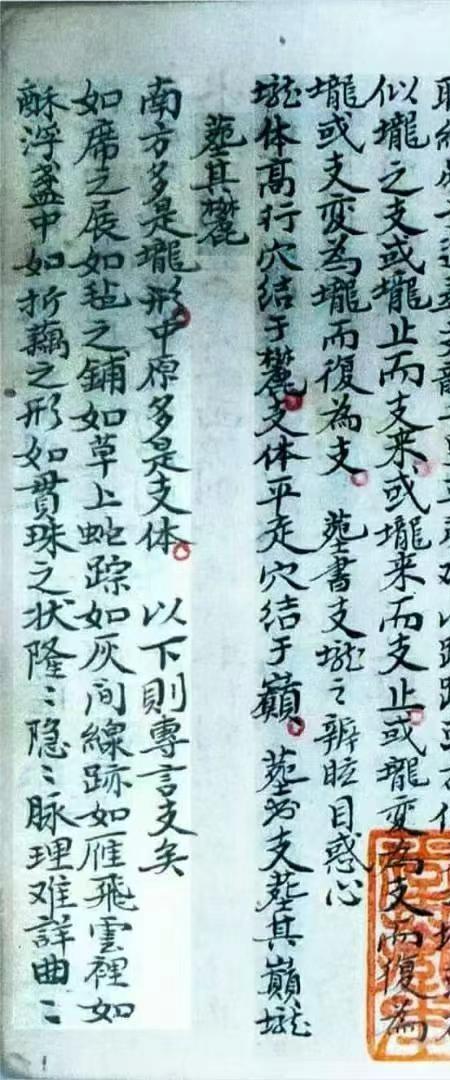 似壠之支或壠止而支来或壠来而支止或壠变為支而復為
壠或支变為壠而復為支。葬書支壠之辨眩目惑心
壠体高行穴结于麓。支体平走穴结于巔。葬於支葬其巔壠
葬其麓
南方多是壠形。中原多是支体。以下則專言支矣
如席之展如毡之鋪如草上蛇踪如灰间線跡如雁飛雲裡如
酥浮盏中如折藕之形如貫珠之状隆〻隐〻脉理难詳曲〻